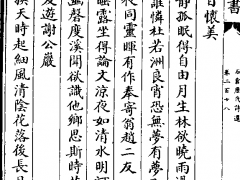 書
石倉歷代詩選
卷三百十八
日懷美
靜孤眠得自由月生林欲曉雨過
誰憐杜若洲良宵恐無夢有夢
夜同靈暉有作奉寄翁趙二友
睡露坐得論文涼夜如清水明河
幽磬度溪聞欲識他鄉思斯時
夏遊謝公巖
換天時起細風清陰花落後長日